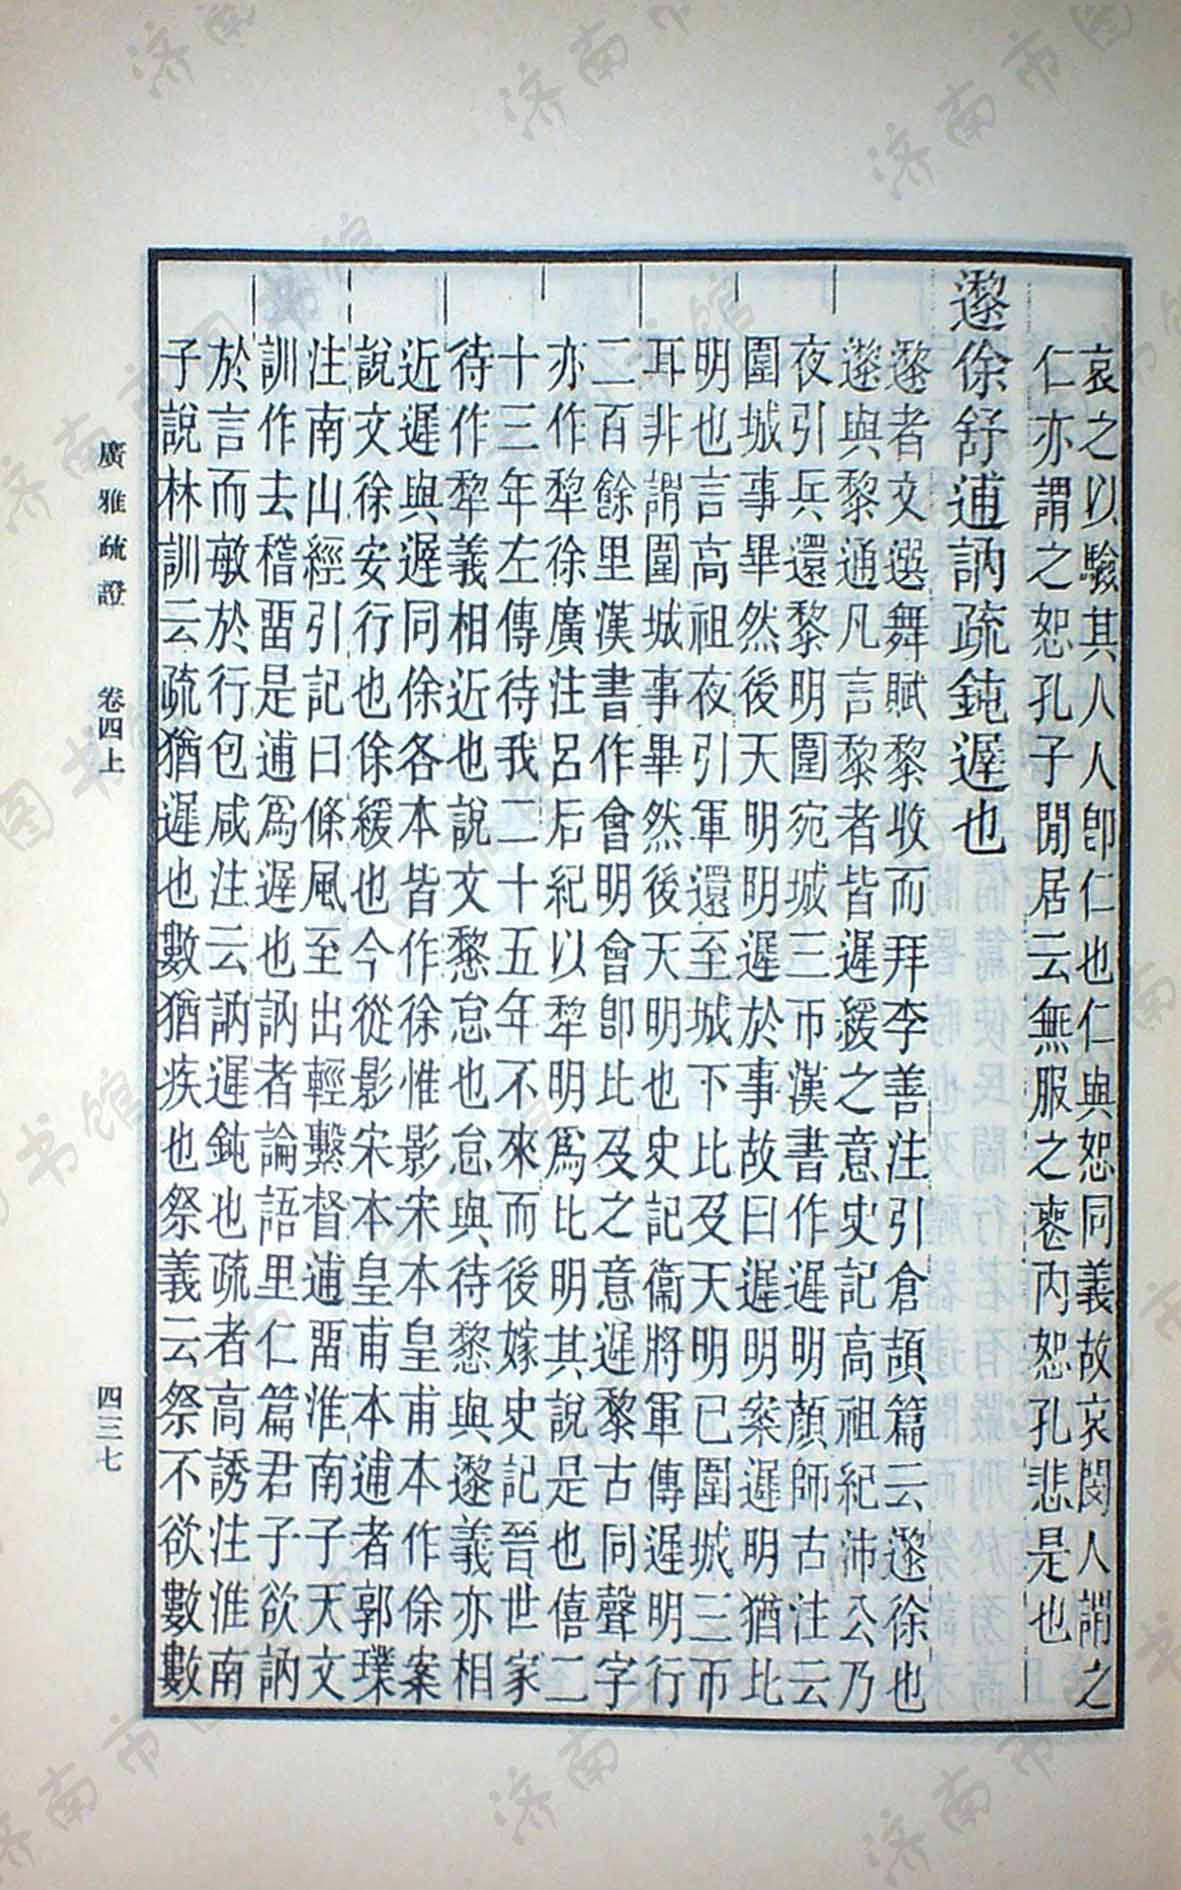 哀之以驗其人人卽仁也仁與恕同義故哀閔人謂之
仁亦謂之恕孔子閒居云無服之喪內恕孔悲是也
邌徐舒逋訥疏鈍遟也
邌者文選舞賦黎收而拜李善注引倉頡篇云邌徐也
邌與黎通凡言黎者皆遲緩之意史記高祖紀沛公乃
夜引兵還黎明圍宛城三帀漢書作遟明顏師古注云
圍城事畢然後天明明遲於事故曰遟明案遟明猶比
明也言高祖夜引軍還至城下比及天明已圍城三帀
耳非謂圍城事畢然後天明也史記衞將軍傳遟明行
二百餘里漢書作會明會卽比及之意遟黎古同聲字
亦作犂徐廣注呂后紀以犂明爲比明其說是也僖二
十三年左傳待我二十五年不來而後嫁史記晉世家
待作犂義相近也說文㴝怠也怠與待㴝與邌義亦相
近遲與遟同徐各本皆作徐惟影宋本皇甫本作俆案
說文俆安行也徐緩也今從影宋本皇甫本逋者郭璞
注南山經引記曰條風至出輕繫督逋畱淮南子天文
訓作去稽畱是逋爲遟也訥者論語里仁篇君子欲訥
於言而敏於行包咸注云訥遲鈍也疏者高誘注淮南
子說林訓云疏猶遲也數猶疾也祭義云祭不欲數數
廣雅疏證 卷四上
四三七